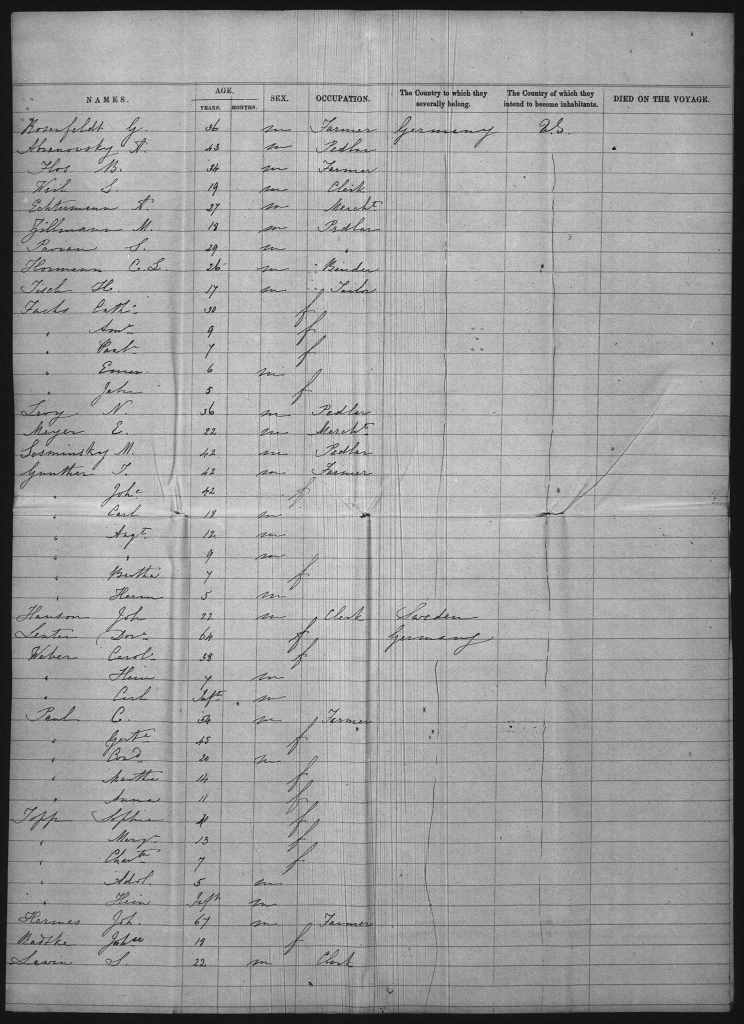 NAMES. AGE. YEARS. MONTHS. SEX. OCCUPATION. The Country to which they severally belong. The Country of which they intend to become inhabitants. DIED ON THE VOYAGE.
Rosenfeldt G. 36 m Farmer Germany U.S.
A. 43 m Pedlar
B. 34 m Farmer
S. 19 m Clerk
Echtermann A. 27 m Mercht
Zillmann M. 18 m Pedlar
S. 29 m "
Hormann C. L. 26 m Binder
Tisch H. 17 m Tailor
Fuchs Cath. 30 f
" 9 f
" 7 f
" 6 m
" 5 f
Levy N. 36 m Pedlar
Meyer E. 22 m Mercht
Sosminsky M. 42 m Pedlar
Gunther F. 42 m Farmer
" Joh. 42 f
" Carl 18 m
" Augt. 12 m
" " 9 m
" Bertha 7 f
" Herm 5 m
Hanson Joh 22 m Clerk Sweden
Dor. 64 f Germany
Weber Carol. 38 f
" Hein 7 m
" Carl Inft m
Paul C. m Farmer
" Gert. 45 f
" Cond 20 m
" Martha 14 f
" Anna 11 f
Topp Sophie f
" Marg. 13 f
" Chart. 7 f
" Adol. 5 m
" Hein Inft m
Hermes Joh. 67 m Farmer
Radtke 18 f
S. 22 m Clerk